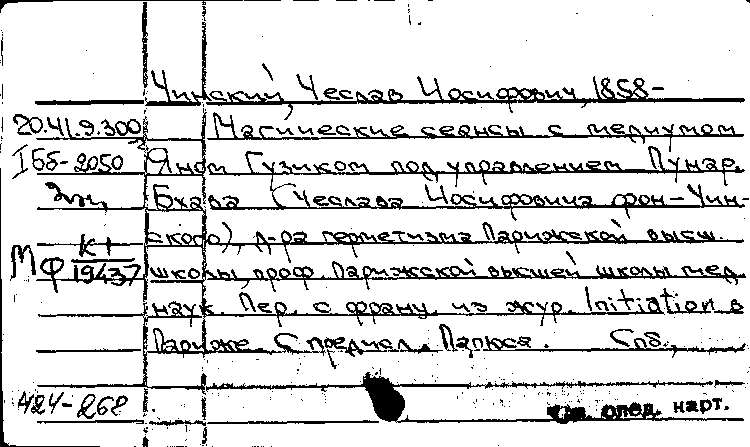 Чинский, Чеслав Иосифович, 1858-
20.41.9.300 Магические сеансы с медиумом
I 66-2050 Яном Гузиком под управлением Пунар.
Экз. Бхава (Чеслава Иосифовича фон-Чин-
ского), д-ра герметизма Парижской высш.
МФ К1/19437 школы, проф. Парижской высшей школы мед.
наук. Пер. с франц. из жур. Initiation в
Париже. С предисл. Папюса. Спб.,
424-268 См. след. карт.